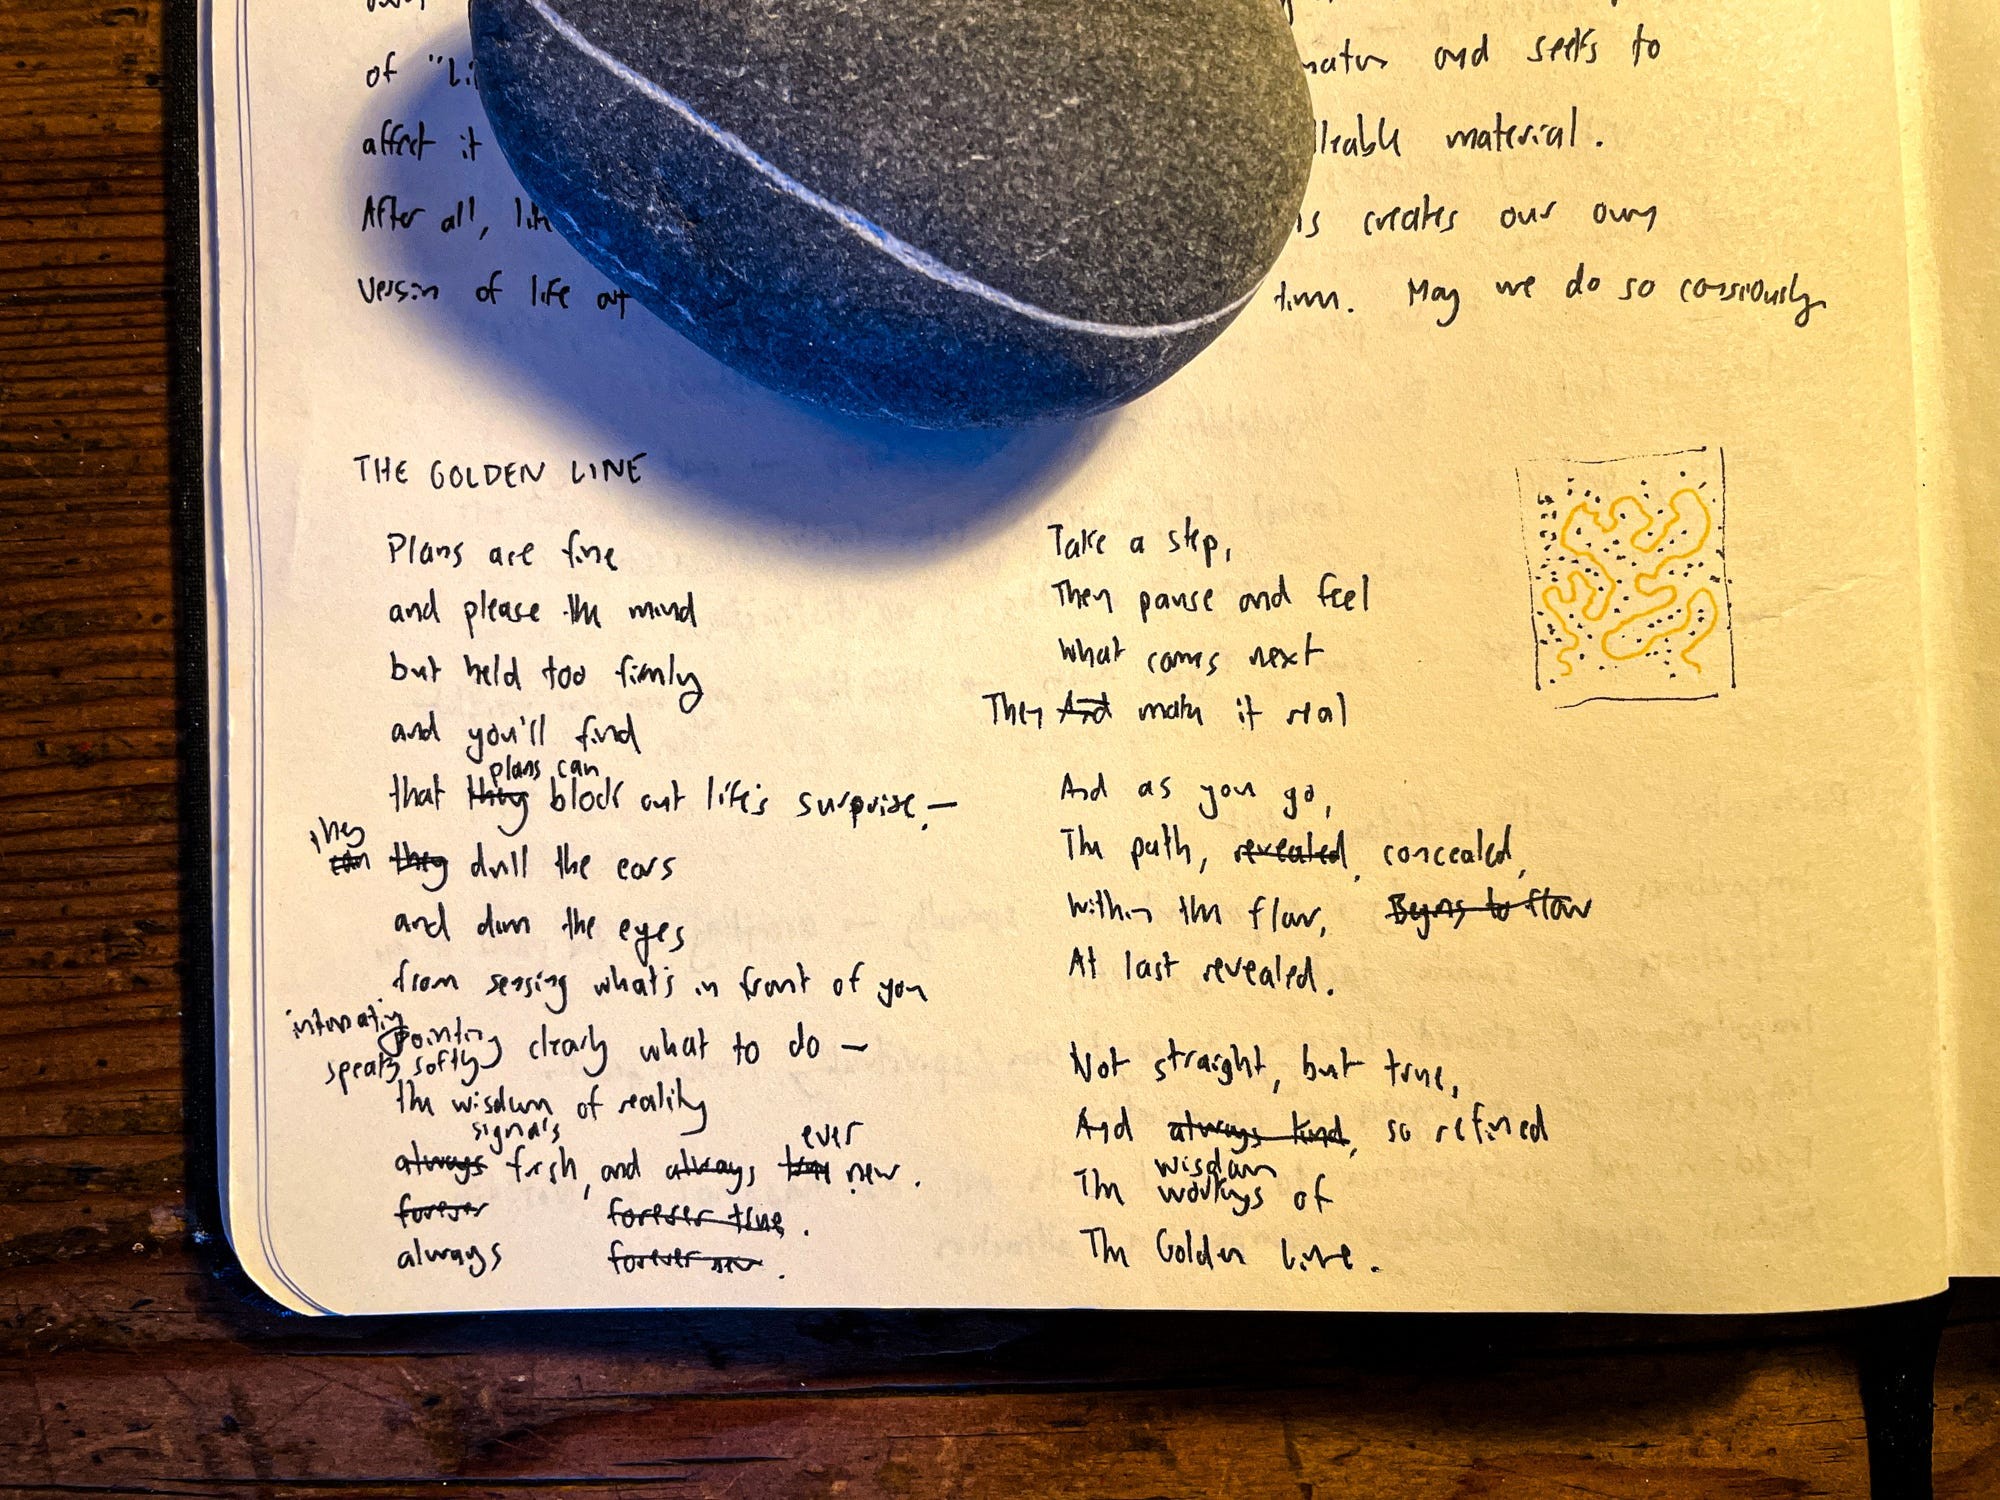 of "Li
and seeks to
affect it
material.
After all,
creates our own
version of life
time. May we do so consciously
THE GOLDEN LINE
Plans are fine
and please the mind
but held too firmly
and you'll find
plans can
that they block out life's surprise. —
they
can they dull the ears
and dim the eyes
from sensing what's in front of you
intimating
pointing clearly what to do —
speaks softly
the wisdom of reality
signals
ever
always fresh, and always new.
forever forever true.
always forever new.
Take a step,
Then pause and feel
What comes next
Then And make it real
And as you go,
The path, revealed, concealed,
Within the flow, Begins to flow
At last revealed.
Not straight, but true,
And always kind, so refined
wisdom
The workings of
The Golden Line.